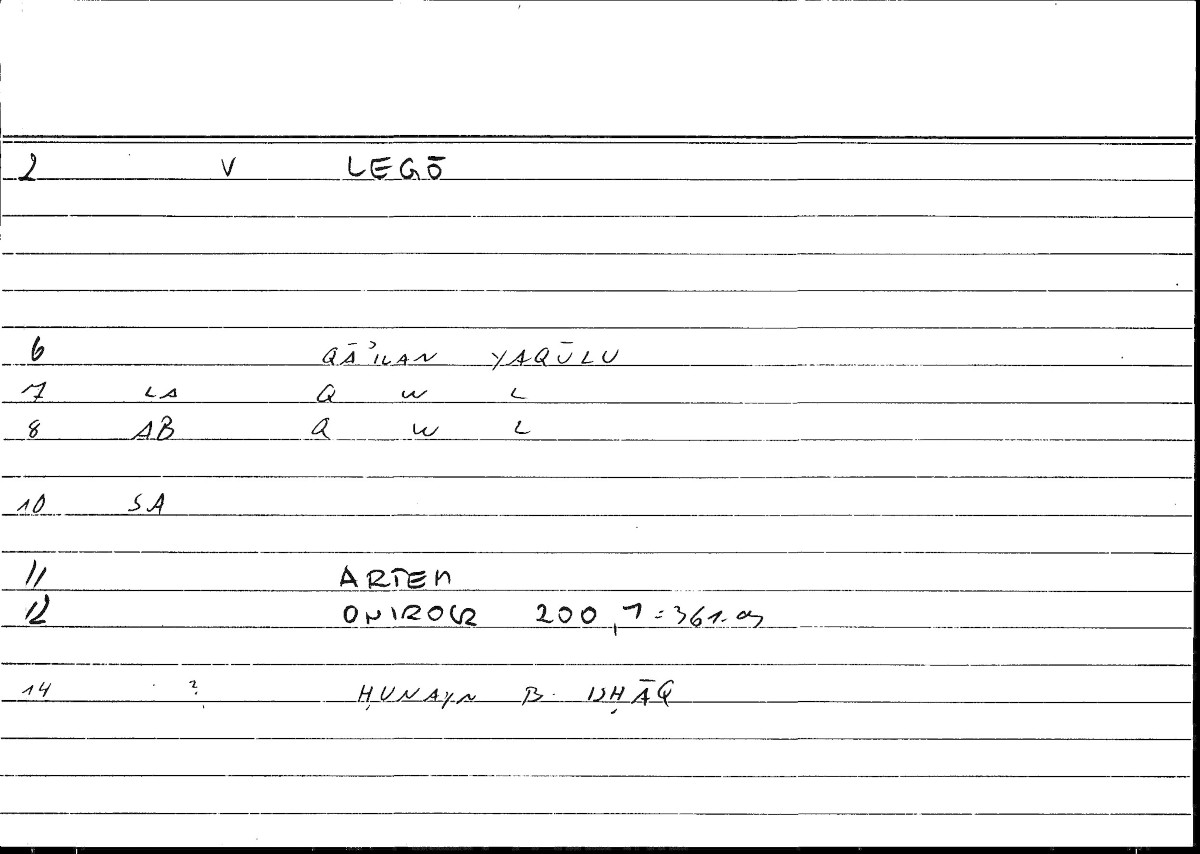 2 V LEGŌ
6 QĀʾILAN YAQŪLU
7 LA Q W L
8 AB Q W L
10 SA
11 ARTEM
12 ONIROCR 200,1 = 361.
14 ? ḤUNAYN B. ISḤĀQ